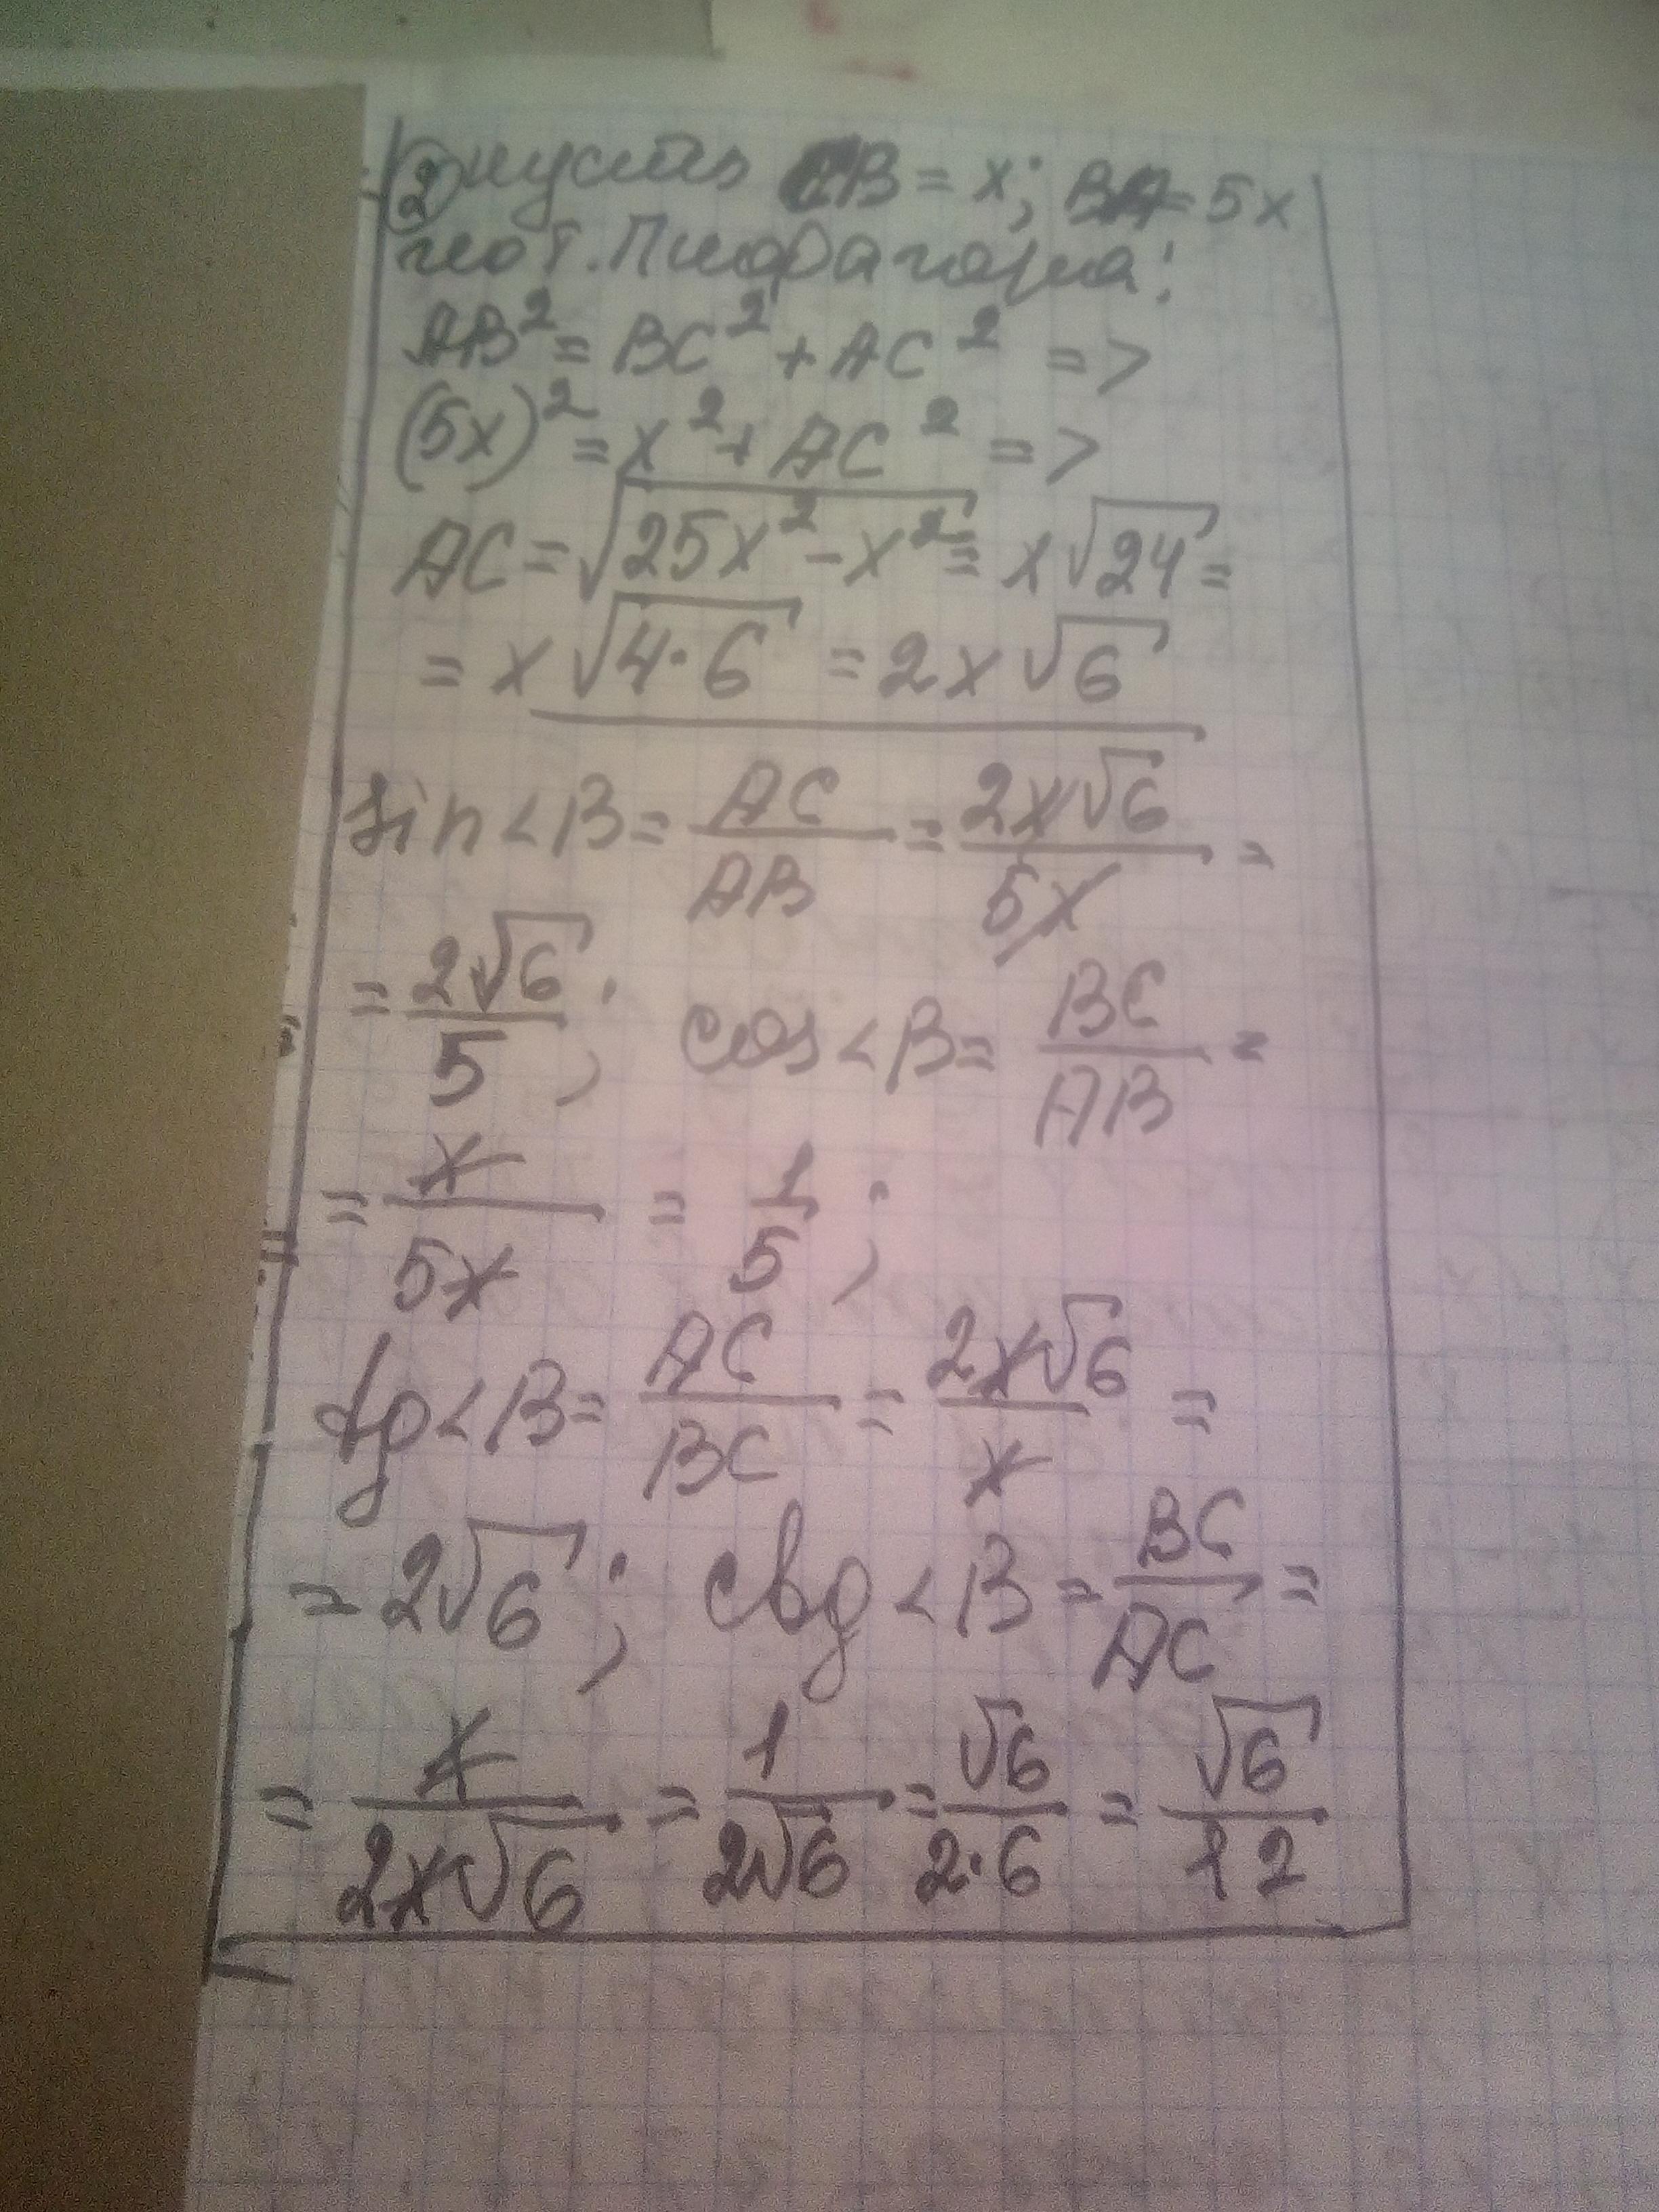 ② пусть CB = x; BA = 5x
по т. Пифагора:
AB² = BC² + AC² =>
(5x)² = x² + AC² =>
AC = √25x² - x² = x√24 =
= x√4·6 = 2x√6
sin<B = AC/AB = 2x√6/5x =
= 2√6/5; cos<B = BC/AB =
= x/5x = 1/5;
tg<B = AC/BC = 2x√6/x =
= 2√6; ctg<B = BC/AC =
= x/2x√6 = 1/2√6 = √6/2·6 = √6/12